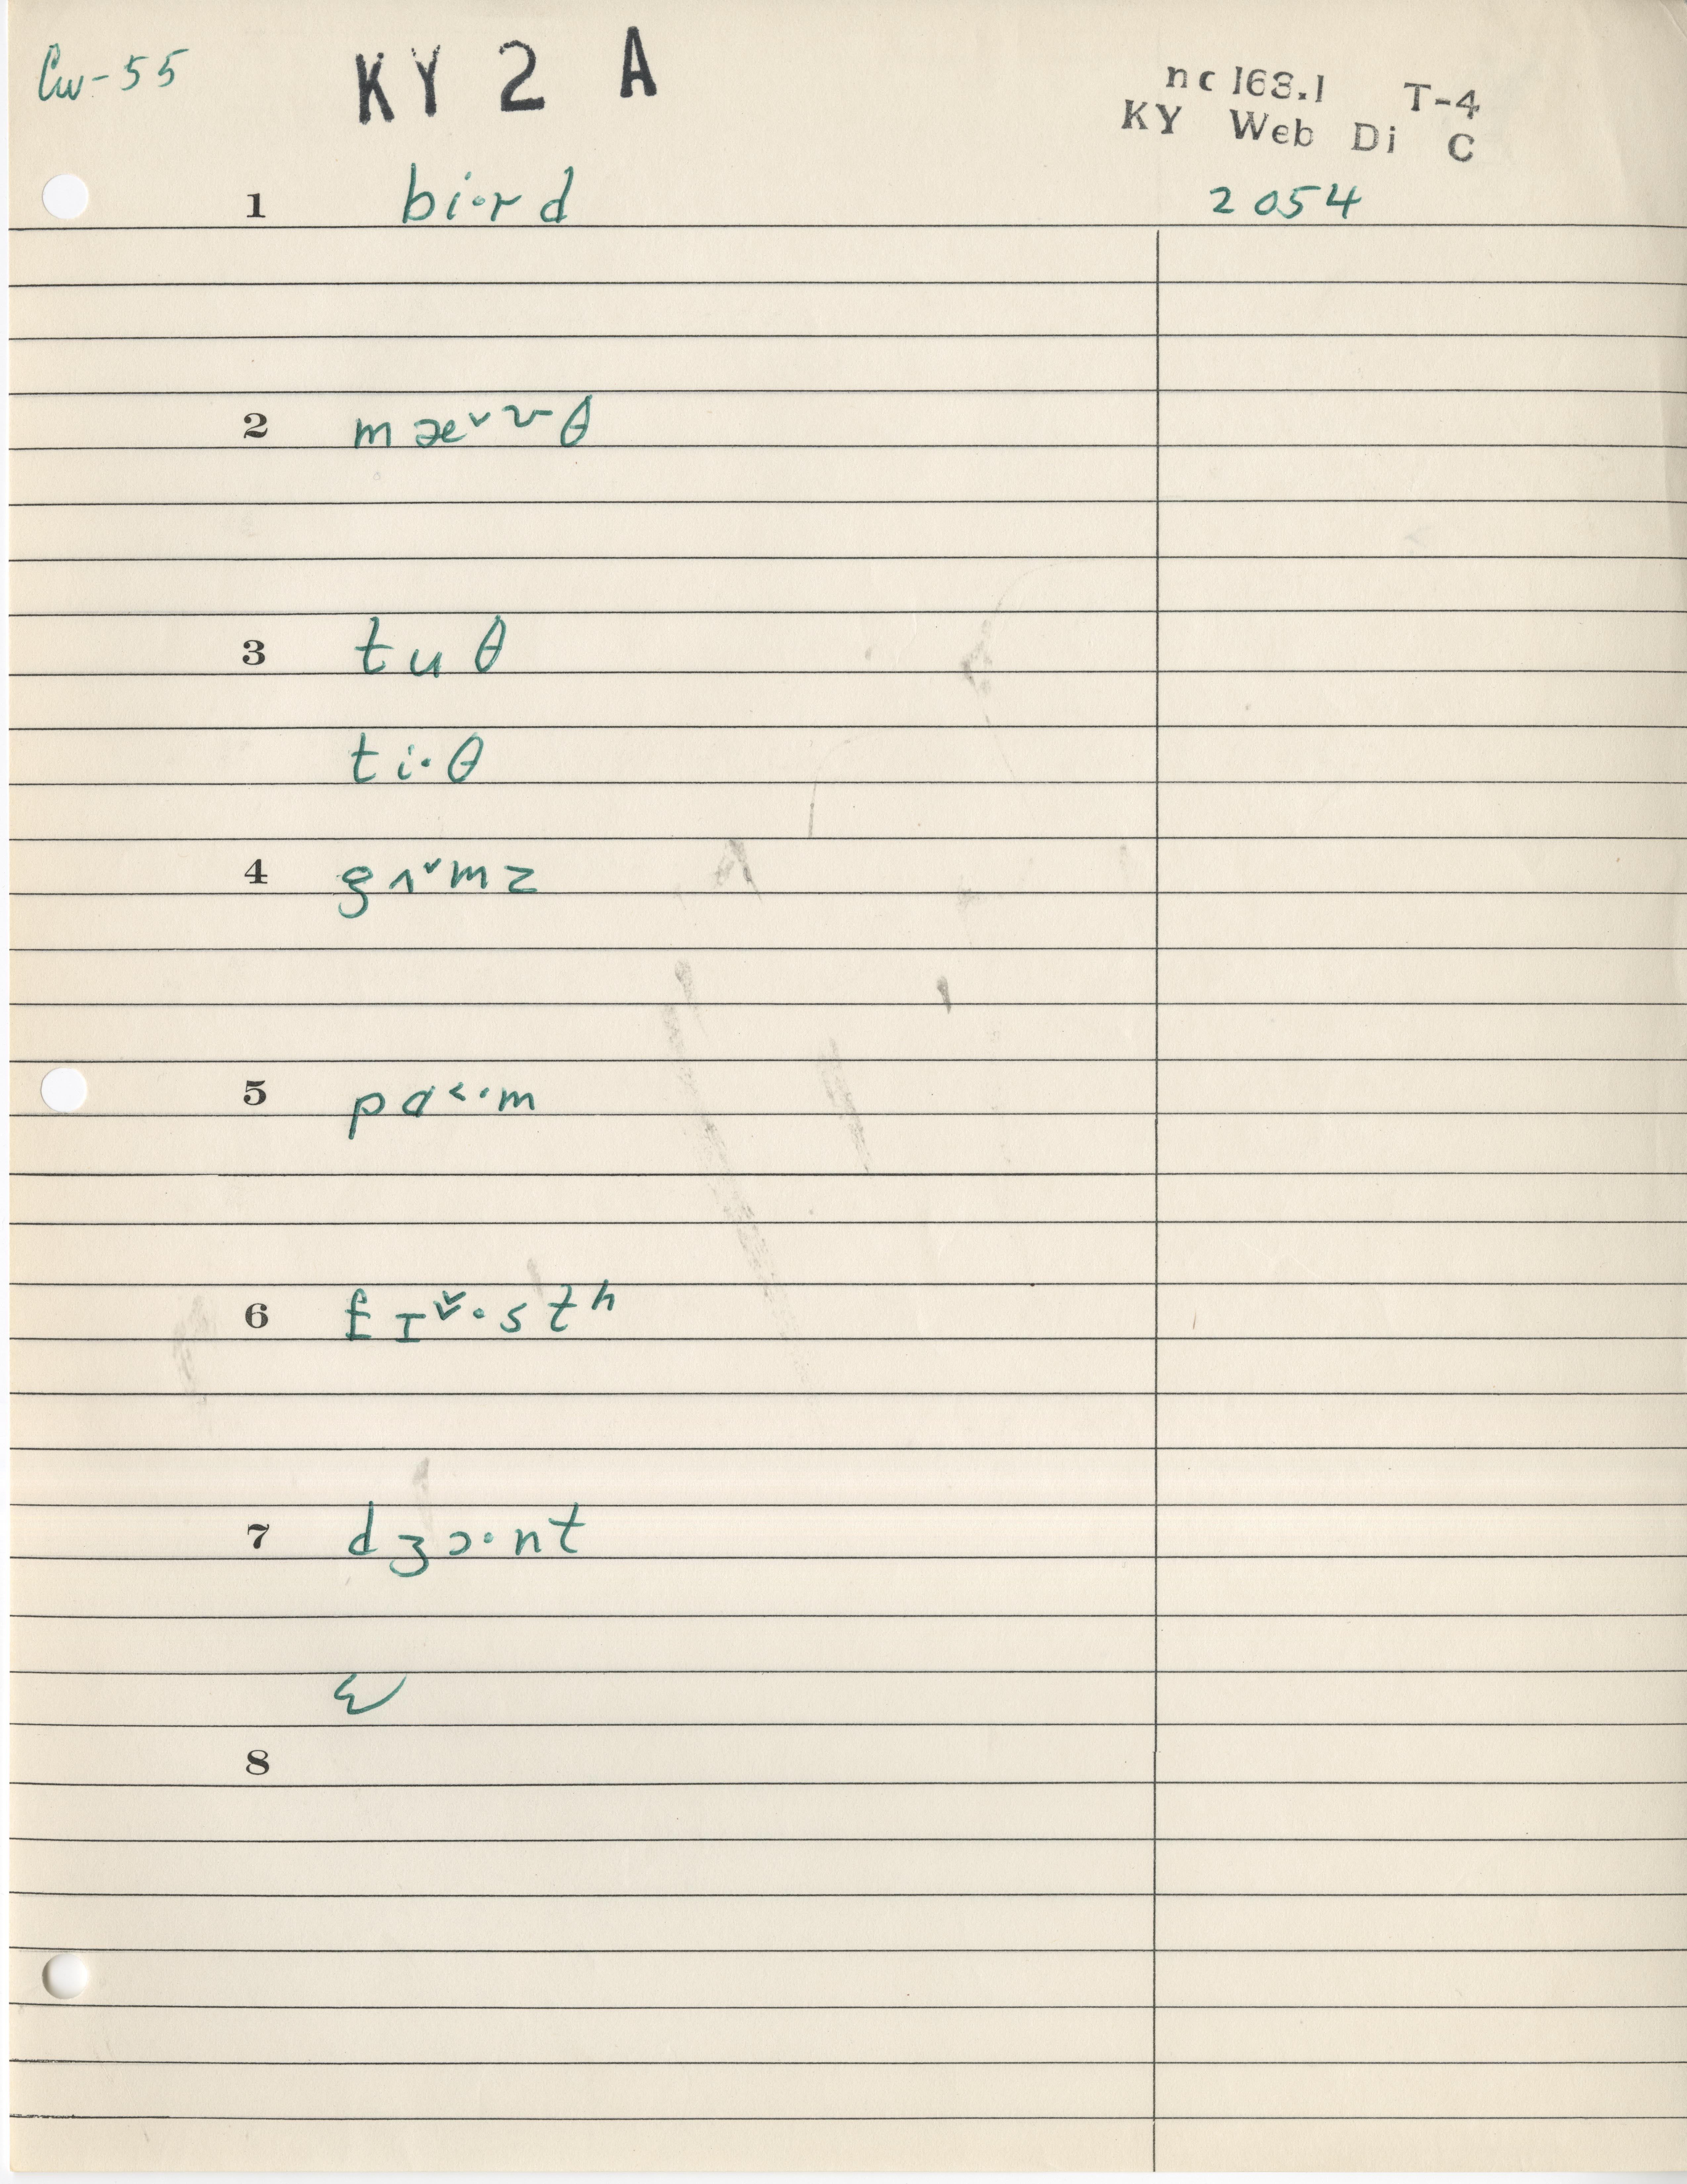 Cw-55 KY 2 A
nc 163.1 T-4
KY Web Di C
1 bi·rd 2054
2 mæ˅˅θ
3 tuθ
ti·θ
4 gʌ˅mz
5 pɑ˂·m
6 fɪ˅˅·stʰ
7 dʒɔ·nt
8